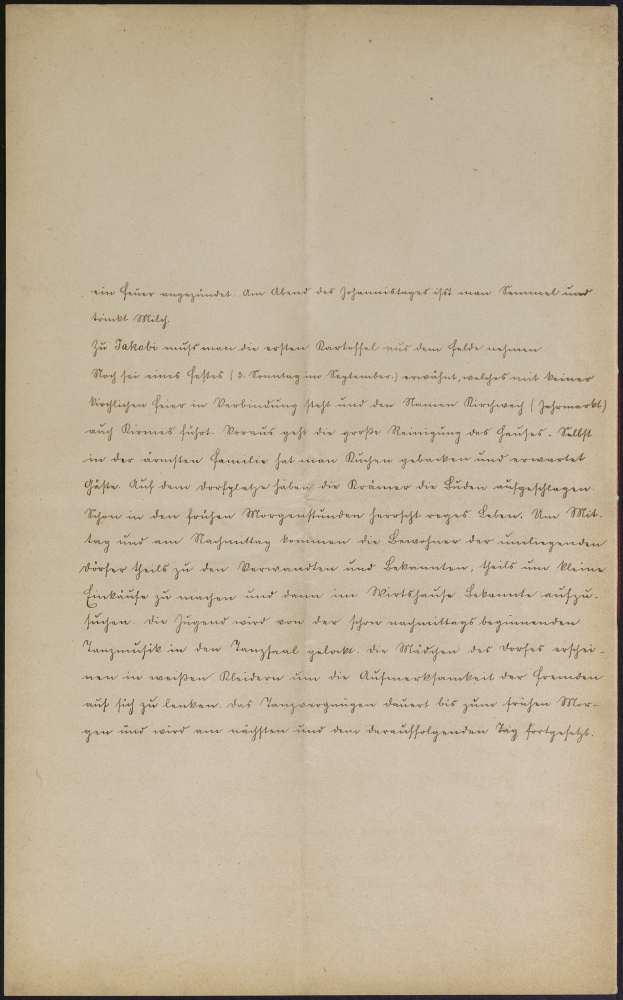 ein Feuer angezündet. Am Abend des Johannistages ißt man Semmel und
trinkt Milch.
Zu Jakobi muß man die ersten Kartoffel aus dem Felde nehmen
Noch sei eines Festes (3. Sonntag im September) erwähnt, welches mit keiner
kirchlichen Feier in Verbindung steht und den Namen Kirchweih (Jahrmarkt)
auch Kirmes führt. Voraus geht die große Reinigung des Hauses. Selbst
in der ärmsten Familie hat man Kuchen gebacken und erwartet
Gäste. Auf dem Dorfplatze haben die Krämer die Buden aufgeschlagen.
Schon in den frühen Morgenstunden herrscht reges Leben. Um Mit-
tag und am Nachmittag kommen die Bewohner der umliegenden
Dörfer theils zu den Verwandten und Bekannten, theils um kleine
Einkäufe zu machen und dann im Wirtshause Bekannte aufzu-
suchen. Die Jugend wird von der schon nachmittags beginnenden
Tanzmusik in den Tanzsaal gelockt. Die Mädchen des Dorfes erschei-
nen in weißen Kleidern um die Aufmerksamkeit der Fremden
auf sich zu lenken. Das Tanzvergnügen dauert bis zum frühen Mor-
gen und wird am nächsten und dem darauffolgenden Tag fortgesetzt.